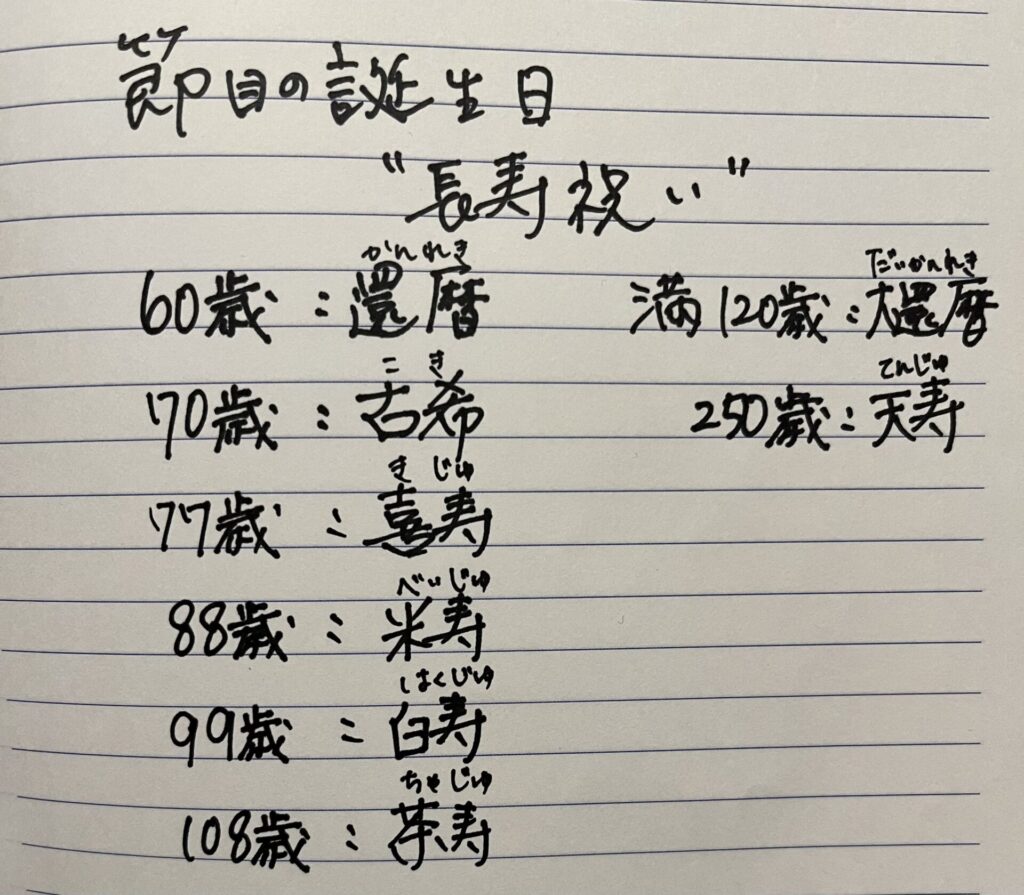 節目の誕生日
"長寿祝い"
かんれき
60歳:還暦
こき
70歳:古希
きじゅ
77歳:喜寿
べいじゅ
88歳:米寿
はくじゅ
99歳:白寿
ちゃじゅ
108歳:茶寿
だいかんれき
満120歳:大還暦
てんじゅ
250歳:天寿